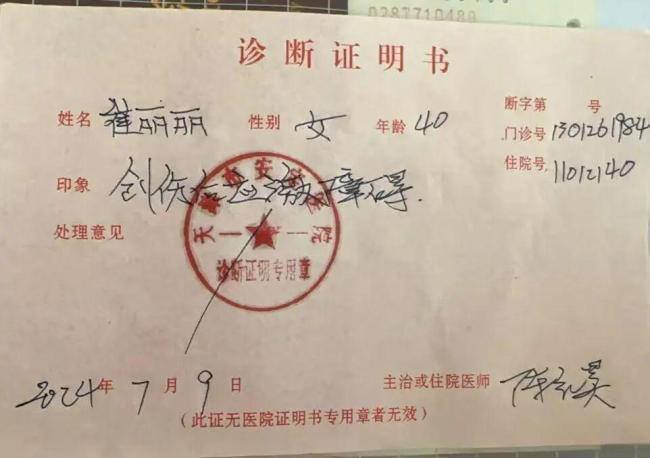 0287710480
诊断证明书
姓名 崔丽丽 性别 女 年龄 40
断字第 号
门诊号 1301261984
住院号 11012140
印象 创伤后应激障碍.
处理意见
天津市安定医院
诊断证明专用章
2024年7月9日 主治或住院医师
(此证无医院证明书专用章者无效)